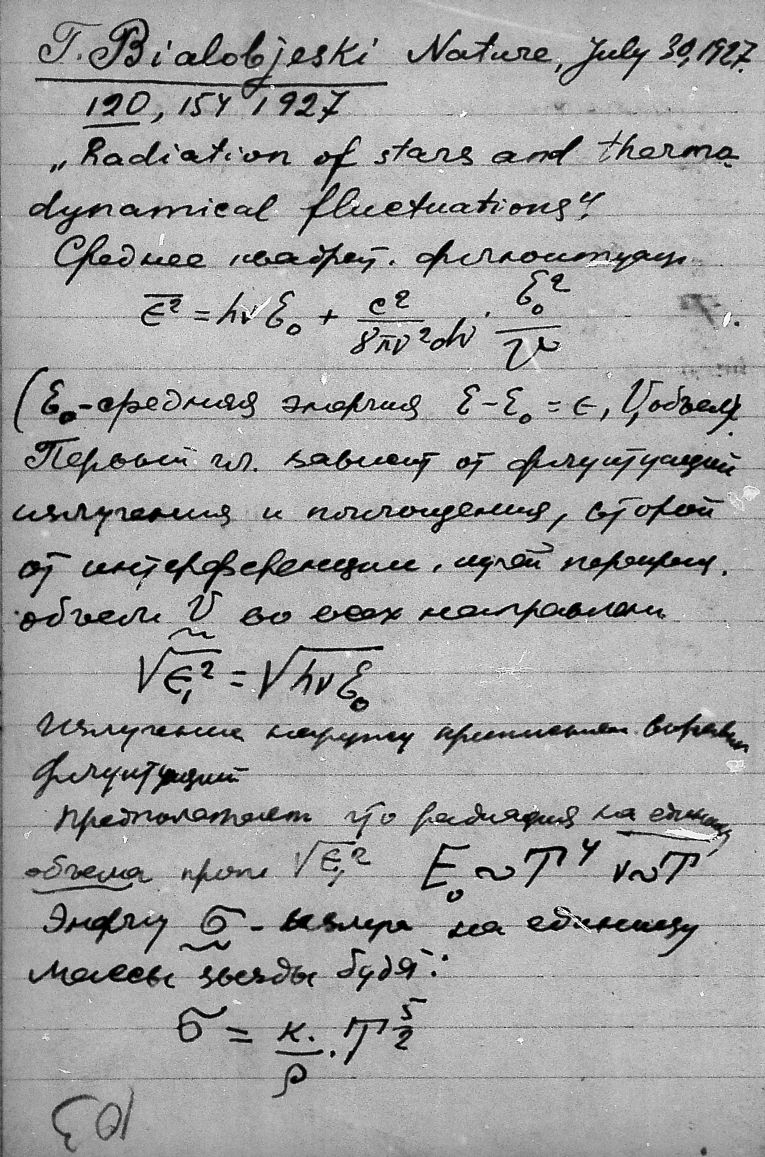 T. Bialobjeski Nature, July 30, 1927.
120, 154 1927
„Radiation of stars and thermo-
dynamical fluctuations“.
Среднее квадрат. флюктуации
ϵ² = hν ℰ₀ + c²/8πν²dν · ℰ₀²/V
(ℰ₀-средняя энергия ℰ-ℰ₀ = ϵ, V, объем).
Первый чл. зависит от флуктуаций
излучения и поглощения, второй
от интерференции, лучей
объем V во всех направлен.
√ϵ₁² = √hνℰ₀
Излучение наружу
флуктуаций
Предполагает что радиация на единицу
объема проп √ϵ₁² E₀ ~ T⁴ ν~T
Энергия σ - излуч на единицу
массы звезды будет:
σ = к./ρ · T^5/2
103